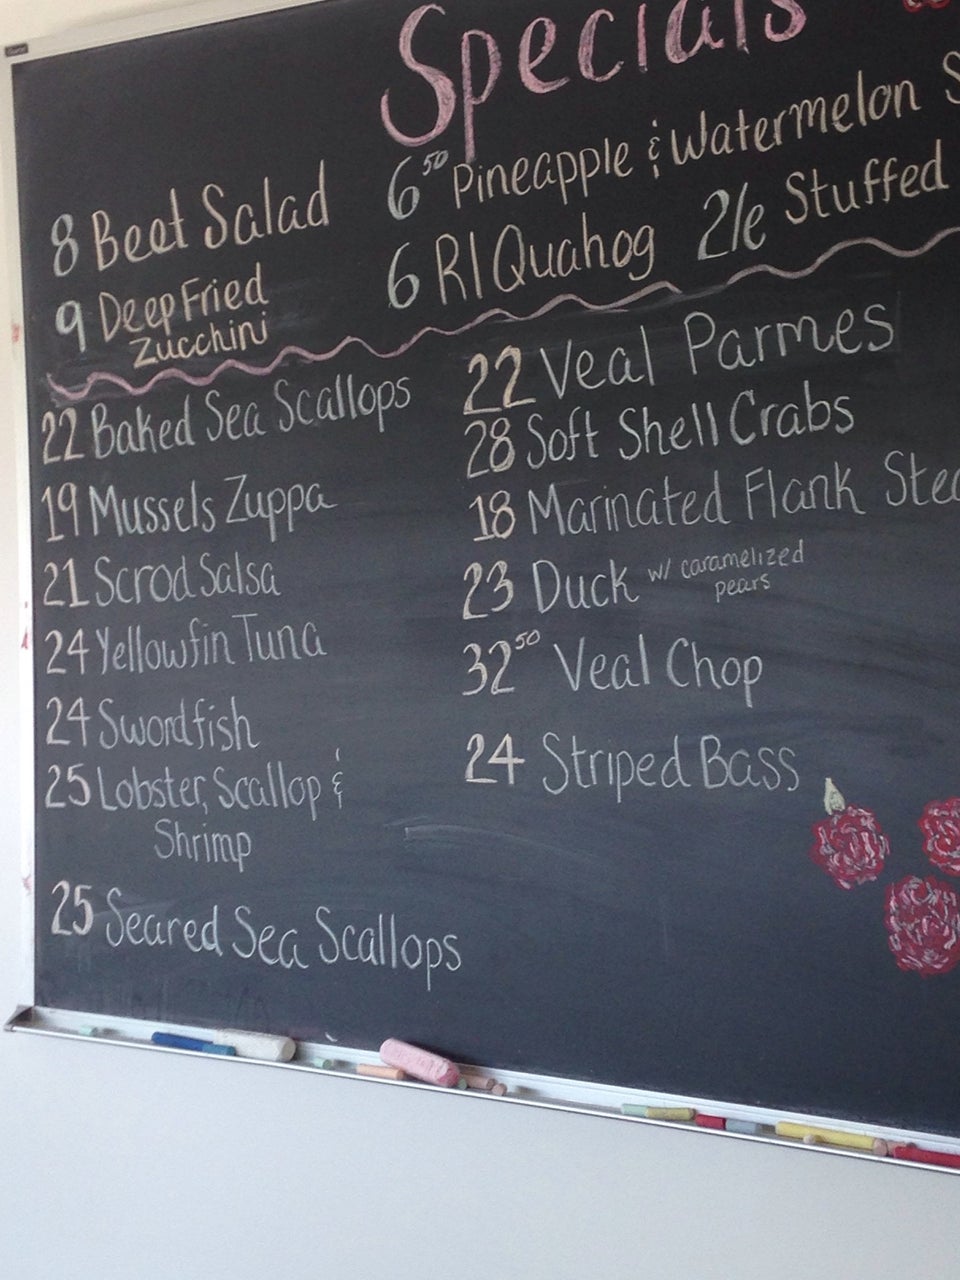 Specials
8 Beet Salad
6⁵⁰ Pineapple & Watermelon
9 Deep Fried
Zucchini
6 RI Quahog
2/e Stuffed
22 Baked Sea Scallops
19 Mussels Zuppa
21 Scrod Salsa
24 Yellowfin Tuna
24 Swordfish
25 Lobster, Scallop &
Shrimp
25 Seared Sea Scallops
22 Veal Parmes
28 Soft Shell Crabs
18 Marinated Flank
23 Duck w/ caramelized
pears
32⁵⁰ Veal Chop
24 Striped Bass